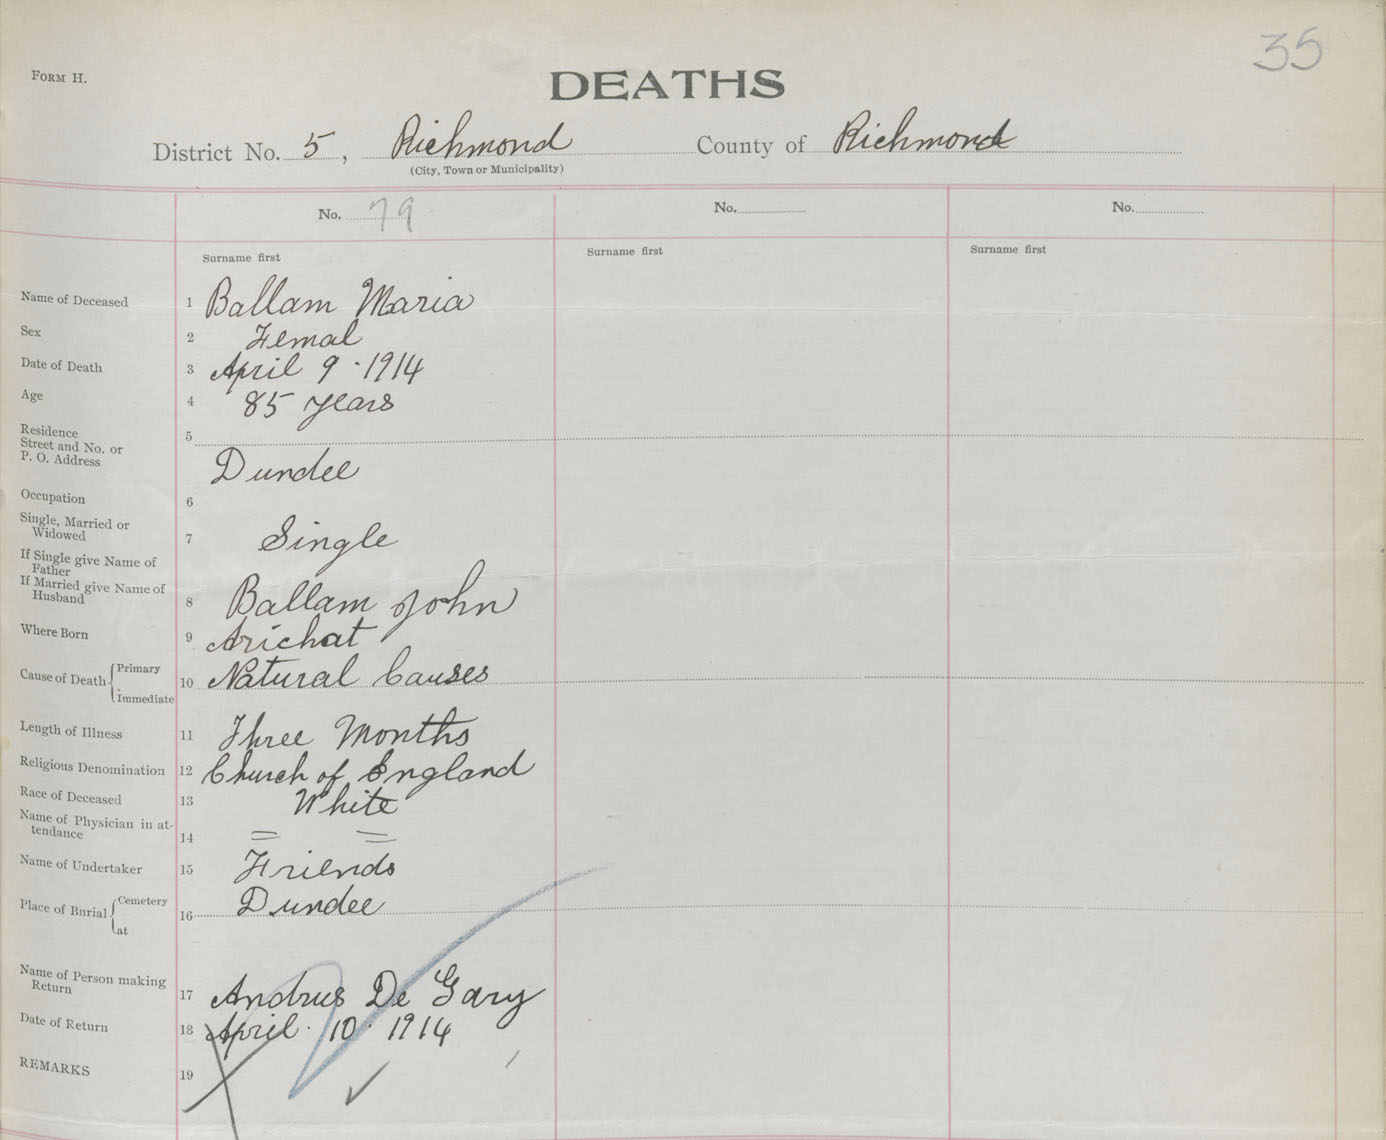 35
FORM H.
DEATHS
District No. 5, Richmond County of Richmond
(City, Town or Municipality)
No. 79 No. No.
Surname first Surname first Surname first
Name of Deceased 1 Ballam Maria
Sex 2 Femal
Date of Death 3 April 9 · 1914
Age 4 85 years
Residence
Street and No. or
P. O. Address 5
Dundee
Occupation 6
Single, Married or
Widowed 7 Single
If Single give Name of
Father
If Married give Name of
Husband 8 Ballam John
Where Born 9 Arichat
Cause of Death { Primary
Immediate 10 Natural Causes
Length of Illness 11 Three Months
Religious Denomination 12 Church of England
Race of Deceased 13 White
Name of Physician in at-
tendance 14 = =
Name of Undertaker 15 Friends
Place of Burial { Cemetery
at 16 Dundee
Name of Person making
Return 17 Andrus De Gary
Date of Return 18 April · 10 · 1914
REMARKS 19